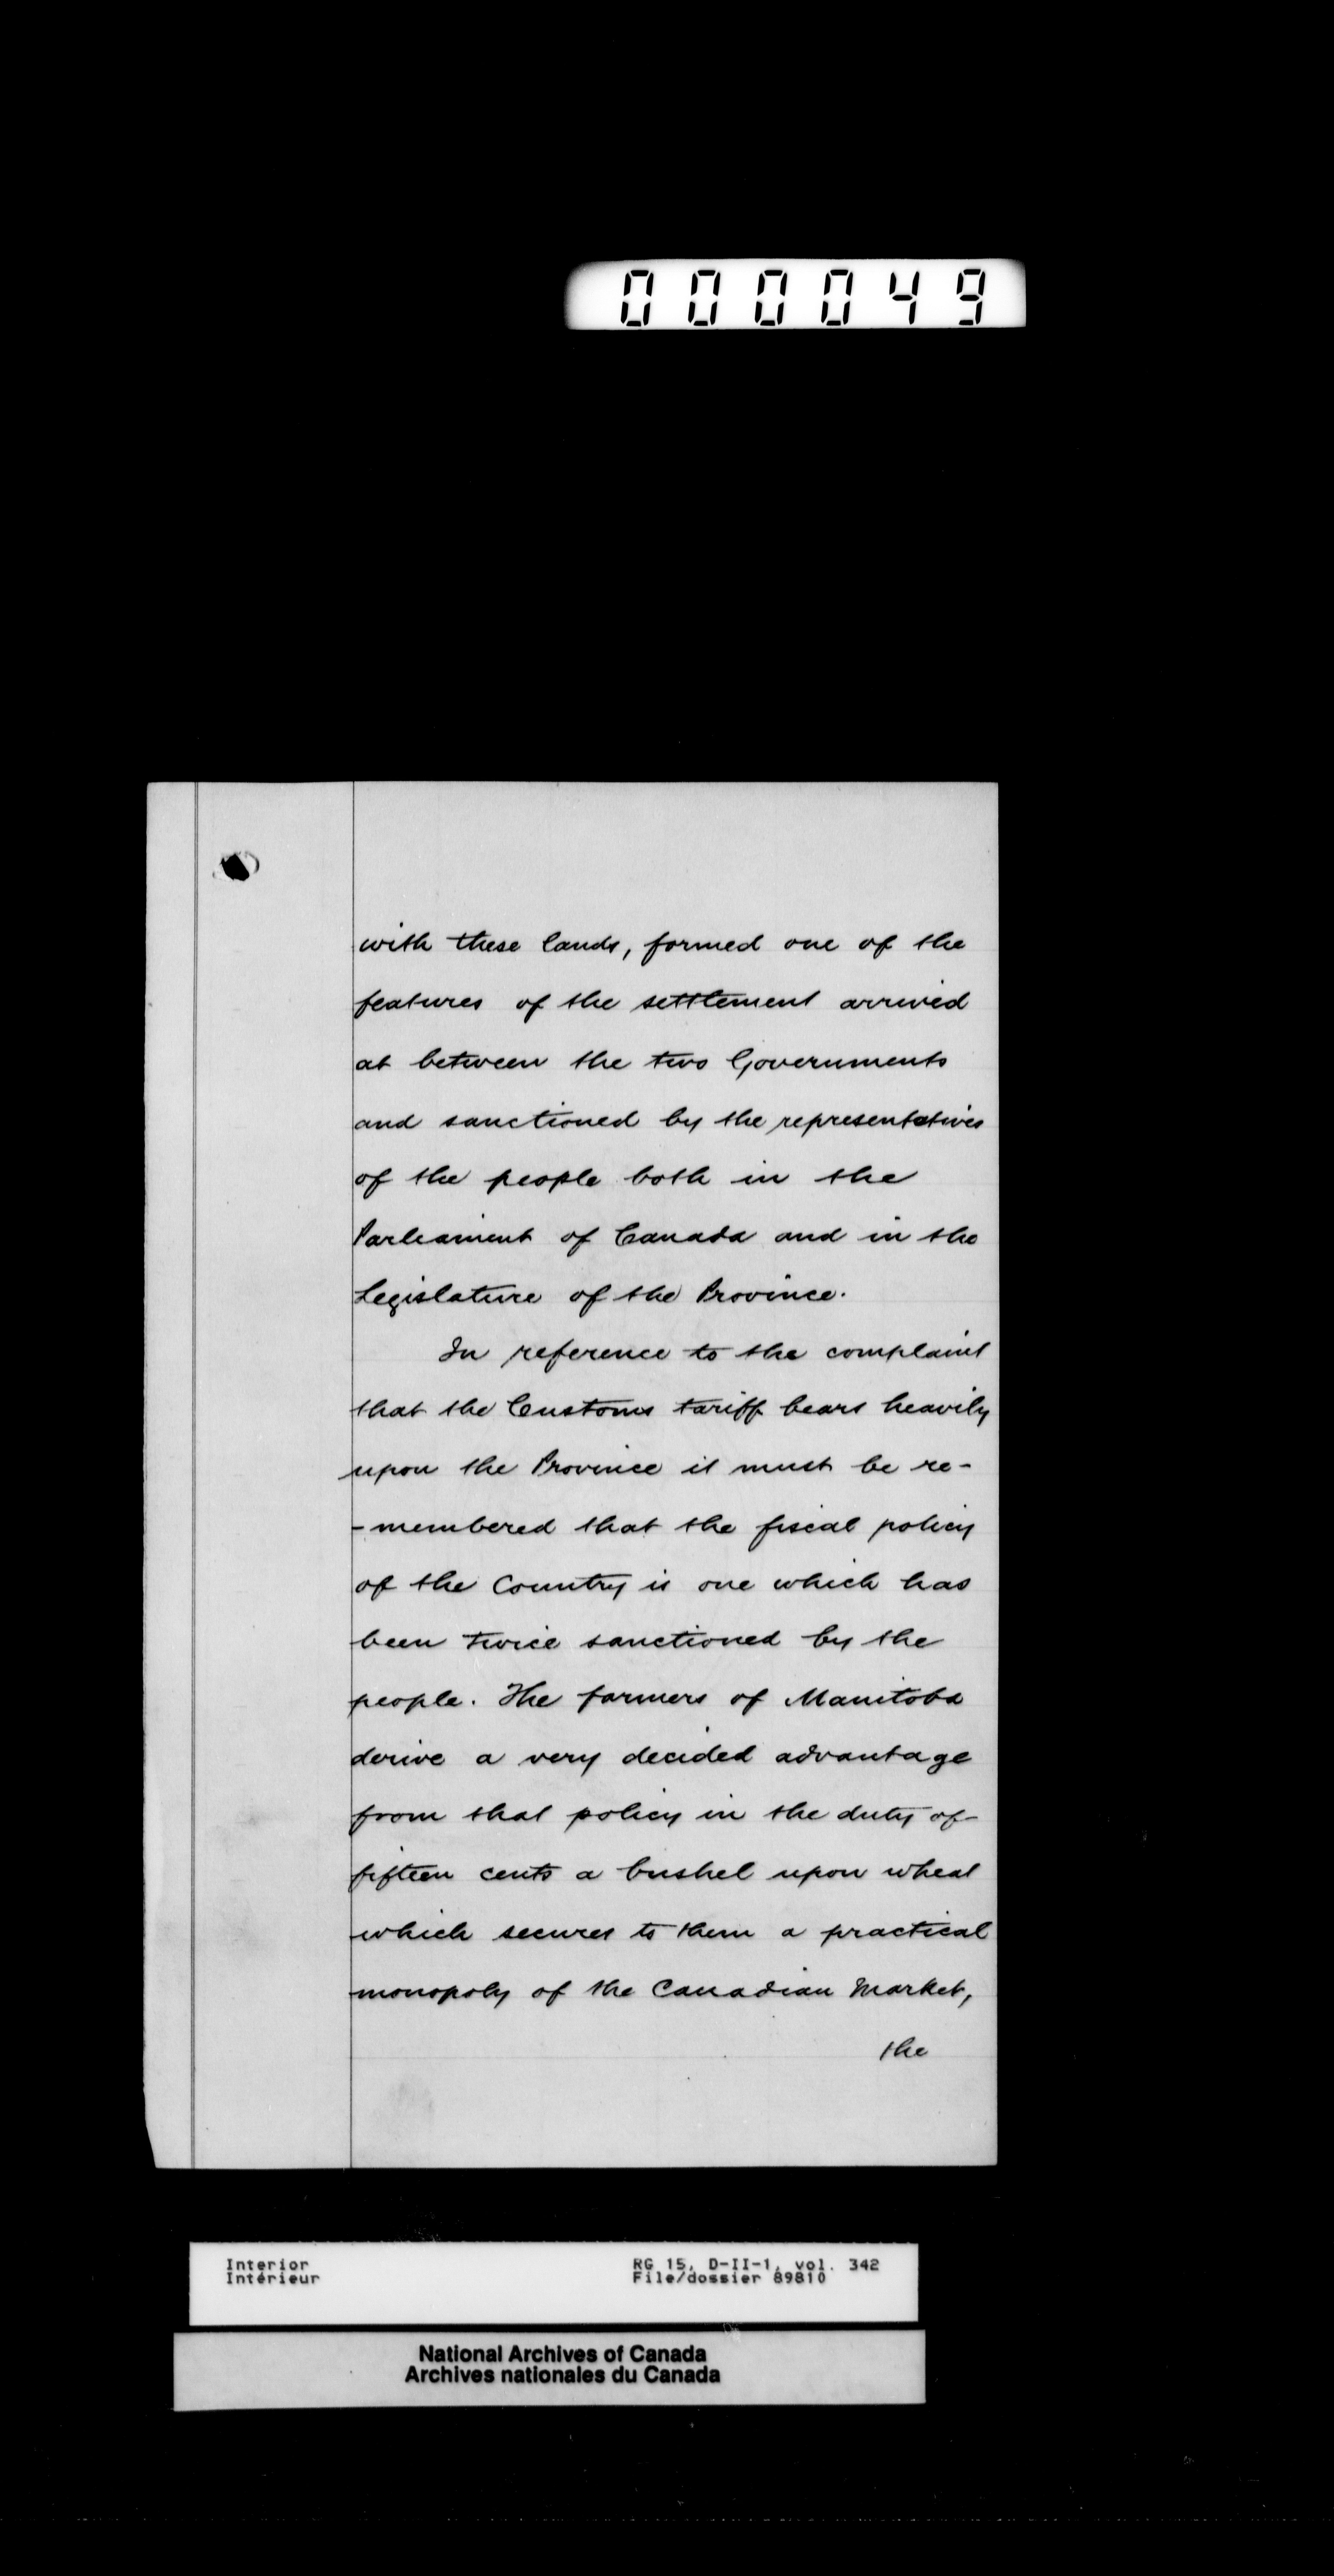 000049
with these lands, formed one of the
features of the settlement arrived
at between the two Governments
and sanctioned by the representatives
of the people both in the
Parliament of Canada and in the
Legislature of the Province.
In reference to the complaint
that the Customs tariff bears heavily
upon the Province it must be re-
-membered that the fiscal policy
of the Country is one which has
been twice sanctioned by the
people. The farmers of Manitoba
derive a very decided advantage
from that policy in the duty of
fifteen cents a bushel upon wheat
which secures to them a practical
monopoly of the Canadian Market,
the
Interior RG 15, D-II-1, vol. 342
Intérieur File/dossier 89810
National Archives of Canada
Archives nationales du Canada